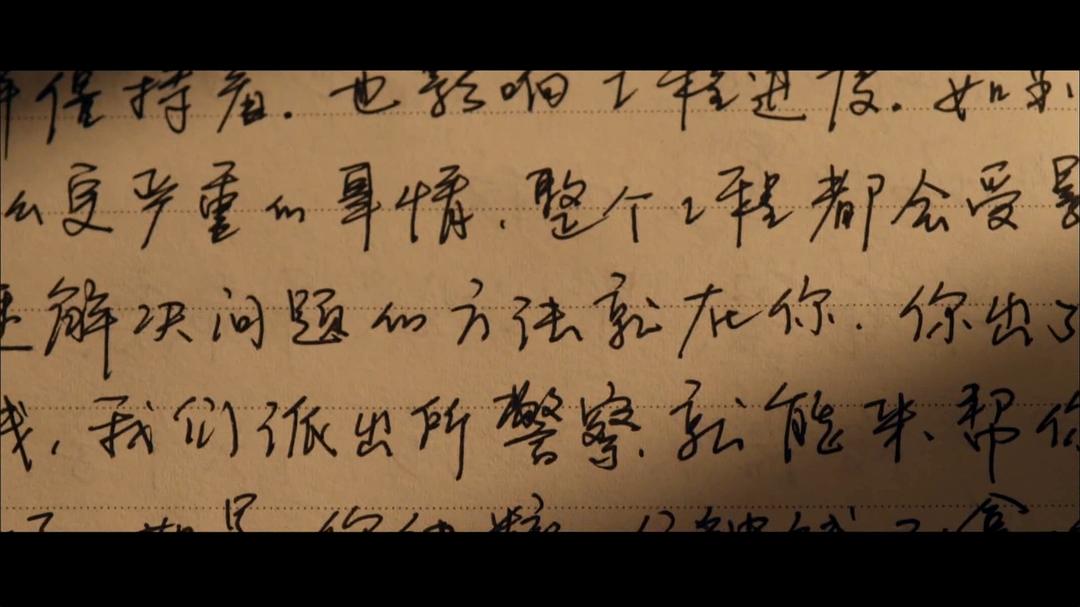 僵持着.也影响工程进度.如果
么更严重的事情,整个工程都会受
解决问题的方法就在你.你出了
钱,我们派出所警察,就能来帮你